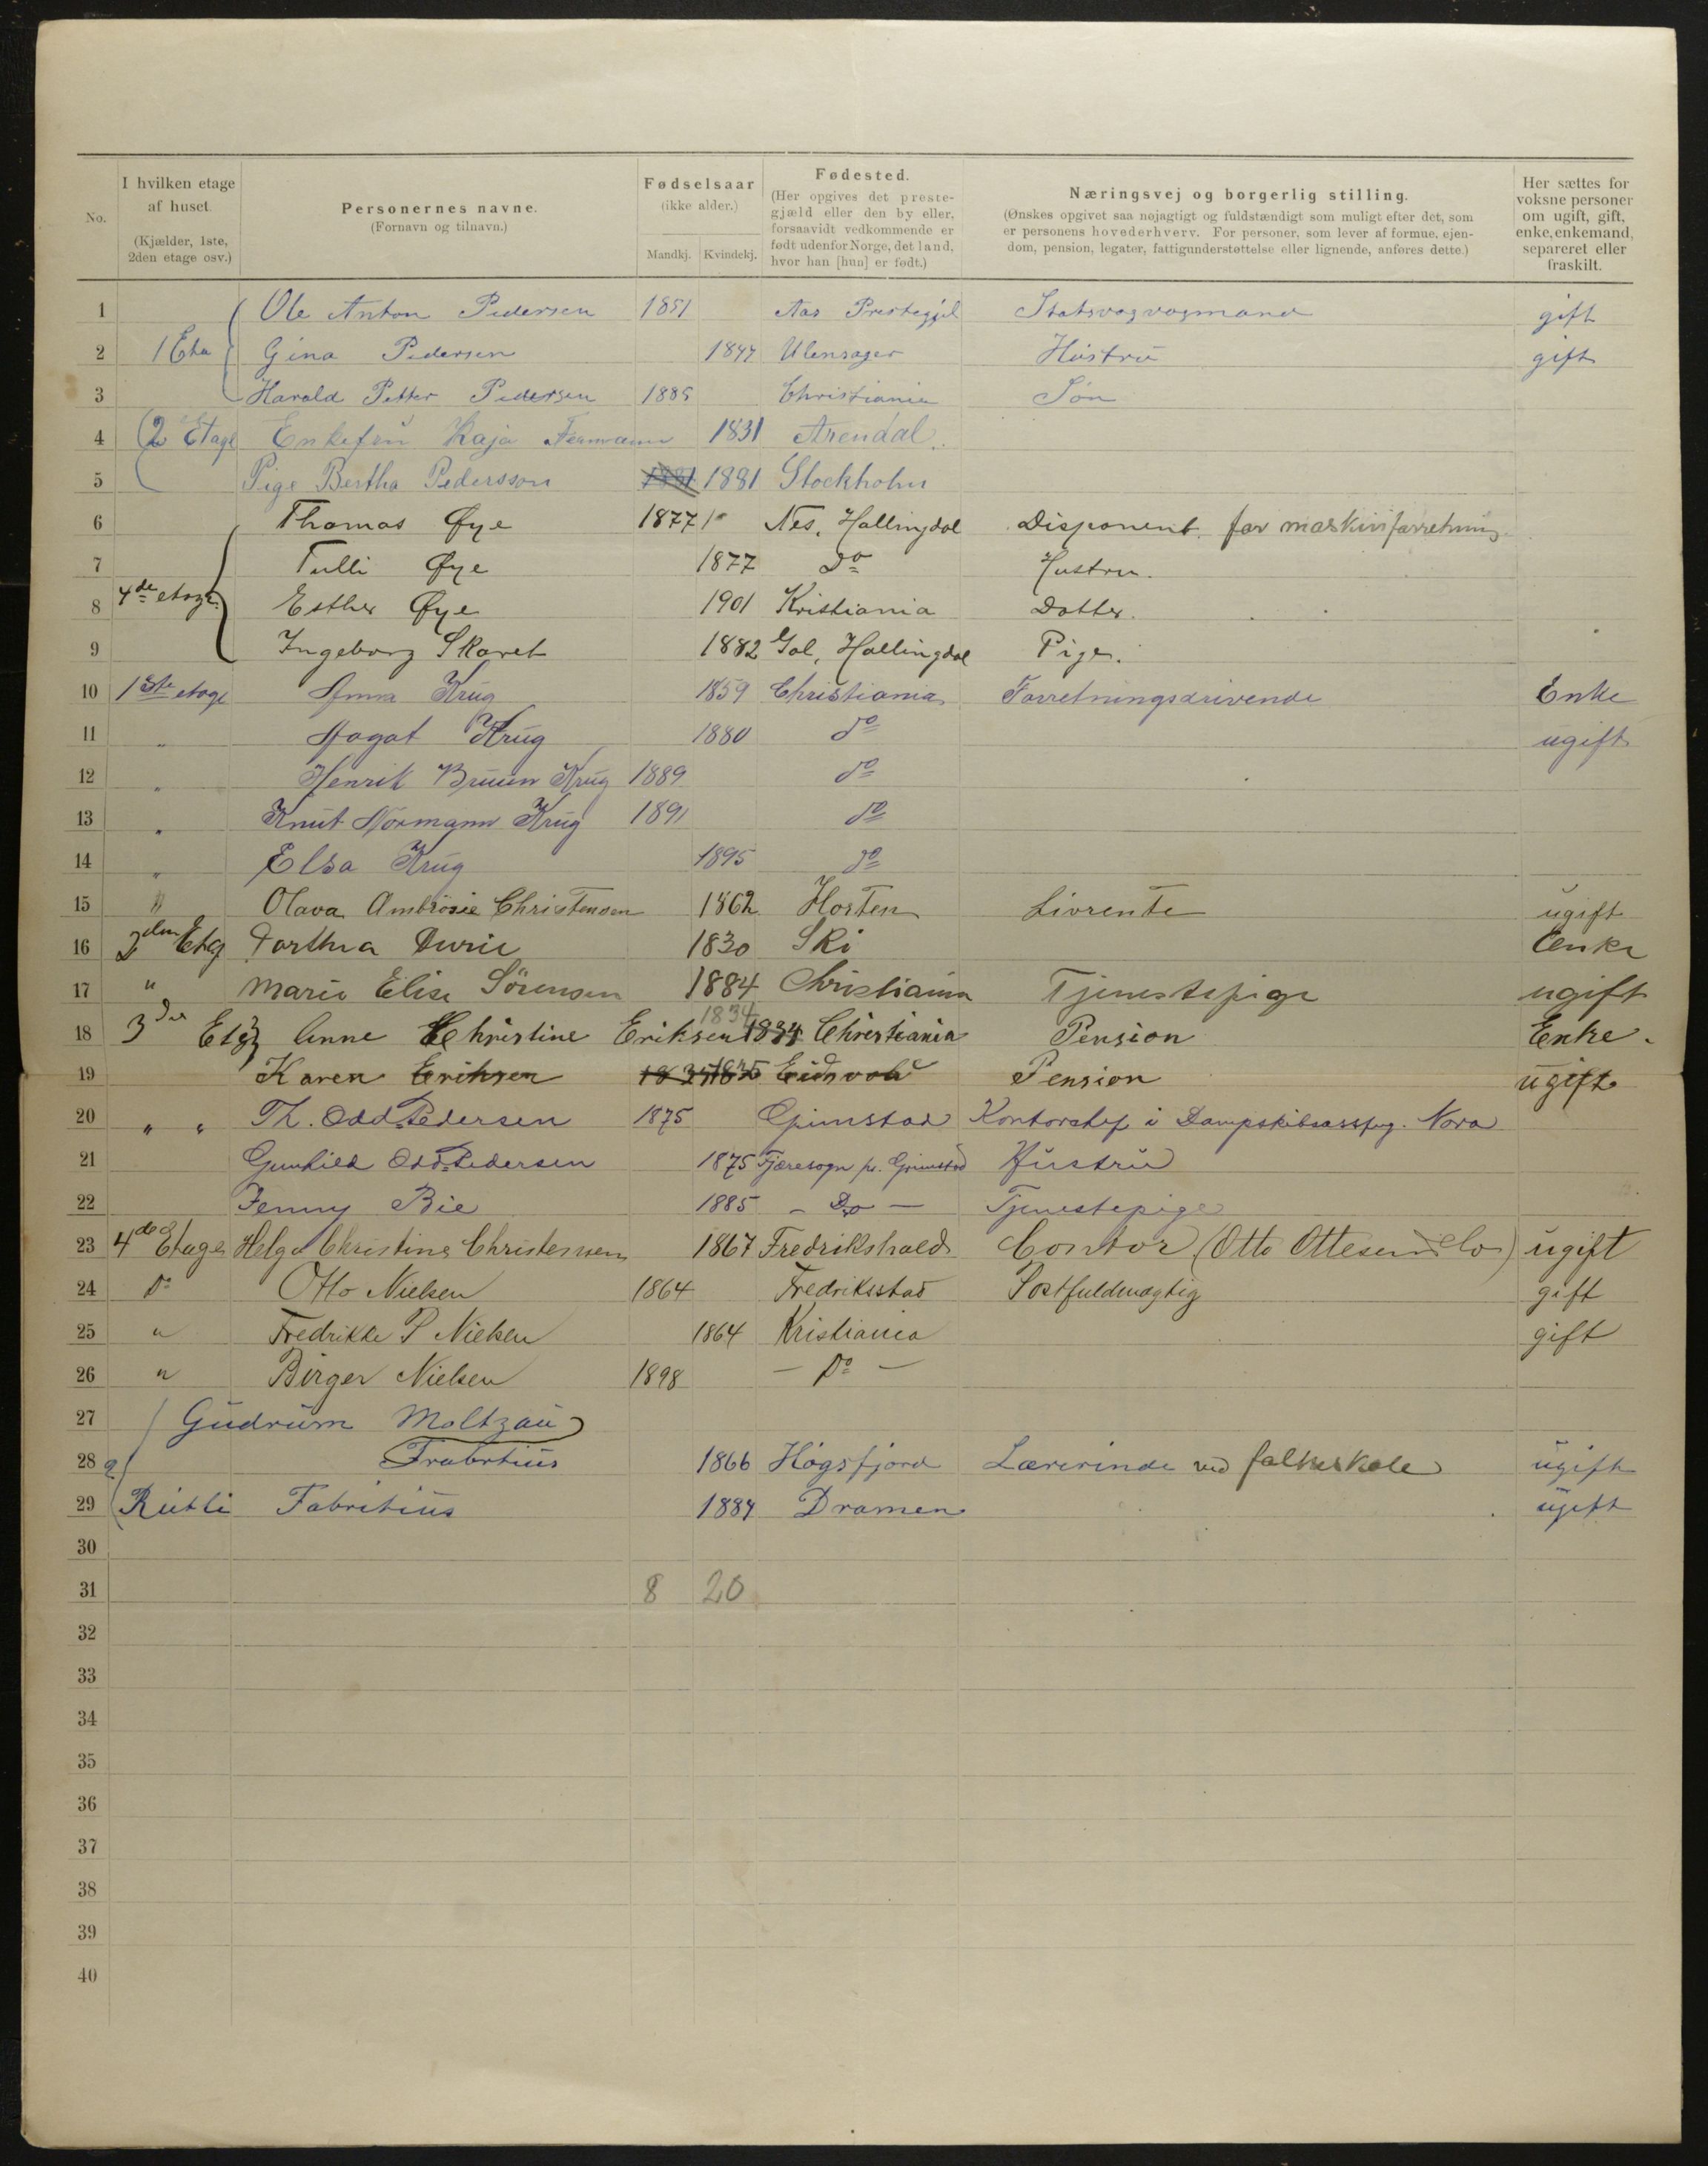 No.
I hvilken etage af huset.
(Kjælder, 1ste, 2den etage osv.)
Personernes navne.
(Fornavn og tilnavn.)
Fødselsaar
(ikke alder.)
Mandkj. Kvindekj.
Fødested.
(Her opgives det prestegjæld eller den by eller, forsaavidt vedkommende er født udenfor Norge, det land, hvor han [hun] er født.)
Næringsvej og borgerlig stilling.
(Ønskes opgivet saa nøjagtigt og fuldstændigt som muligt efter det, som er personens hovederhverv. For personer, som lever af formue, ejendom, pension, legater, fattigunderstøttelse eller lignende, anføres dette.)
Her sættes for voksne personer om ugift, gift, enke, enkemand, separeret eller fraskilt.
1 Ole Anton Pedersen 1851 Aas Prestegjel gift
2 1 Eta Gina Pedersen 1847 Ulensager Hustru gift
3 Harald Petter Pedersen 1885 Christiania Søn
4 2 Etage Enkefru Kaja 1831 Arendal.
5 Pige Bertha Pedersson 1881 1881 Stockholm
6 Thomas Øye 1877 Nes, Hallingdal Disponent for maskinforretning
7 Tulli Øye 1877 Do Hustru.
8 4de etage Esther Øye 1901 Kristiania Datter.
9 Ingeborg Skaret 1882 Gol, Hallingdal Pige.
10 1ste etage Anna Krug 1859 Christiania Forretningsdrivende Enke
11 " Aagot Krug 1880 do ugift
12 " Henrik Bruun Krug 1889 do
13 " Knut Normann Krug 1891 do
14 " Elsa Krug 1895 do
15 " Olava Ambrosie Christensen 1862 Horten Livrente ugift
16 2den Etag Dorthea 1830 Ski Enke
17 " Marie Elise Sörensen 1884 Christiania Tjenestepige ugift
18 3die Etg Anne Christine Eriksen 1834 1834 Christiania Pension Enke.
19 Karen Eriksen 1835 Eidsvold Pension ugift
20 " " Th. Odd-Pedersen 1875 Grimstad Kontorchef i Dampskibsassfog. Nora
21 Gunhild Odd-Pedersen 1875 Fjæresogn pr. Grimstad Hustru
22 Jenny Bie 1885 - Do - Tjenestepige
23 4de Etage Helga Christine Christensen 1867 Fredrikshald Contor (Otto Ottesen & Co) ugift
24 Do Otto Nielsen 1864 Fredriksstad Postfuldmægtig gift
25 " Fredrikke P Nielsen 1864 Kristiania gift
26 " Birger Nielsen 1898 - Do -
27 Gudrum Moltzau
28 2 1866 Høgsfjord Lærerinde ved folkeskole ugift
29 Rutli Fabritius 1884 Dramen ugift
30
31 8 20
32
33
34
35
36
37
38
39
40